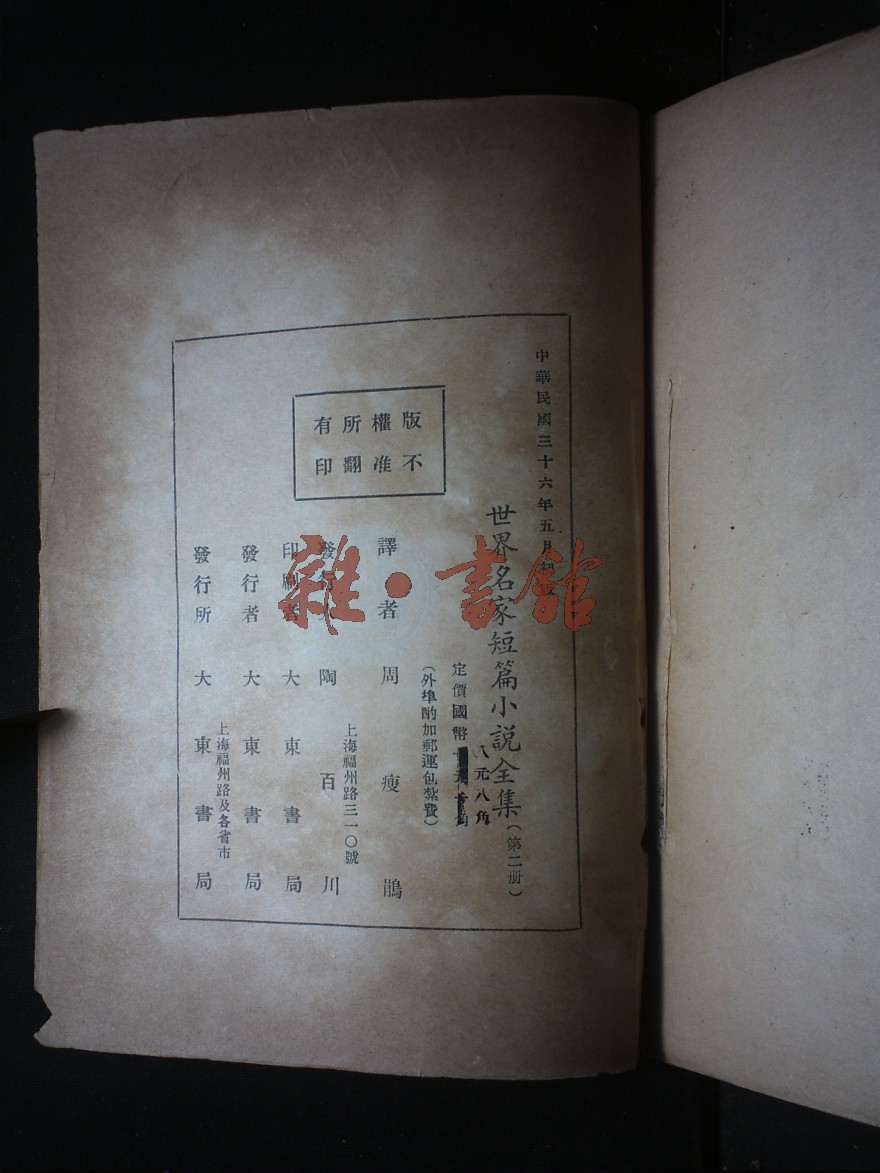 中華民國三十六年五月初版
世界名家短篇小說全集(第二册)
定價國幣
八元八角
(外埠酌加郵運包紮費)
版權所有
不准翻印
譯者 周瘦鵑
發行人 陶百川
上海福州路三一〇號
印刷者 大東書局
發行者 大東書局
發行所 大東書局
上海福州路及各省市
雜·書館